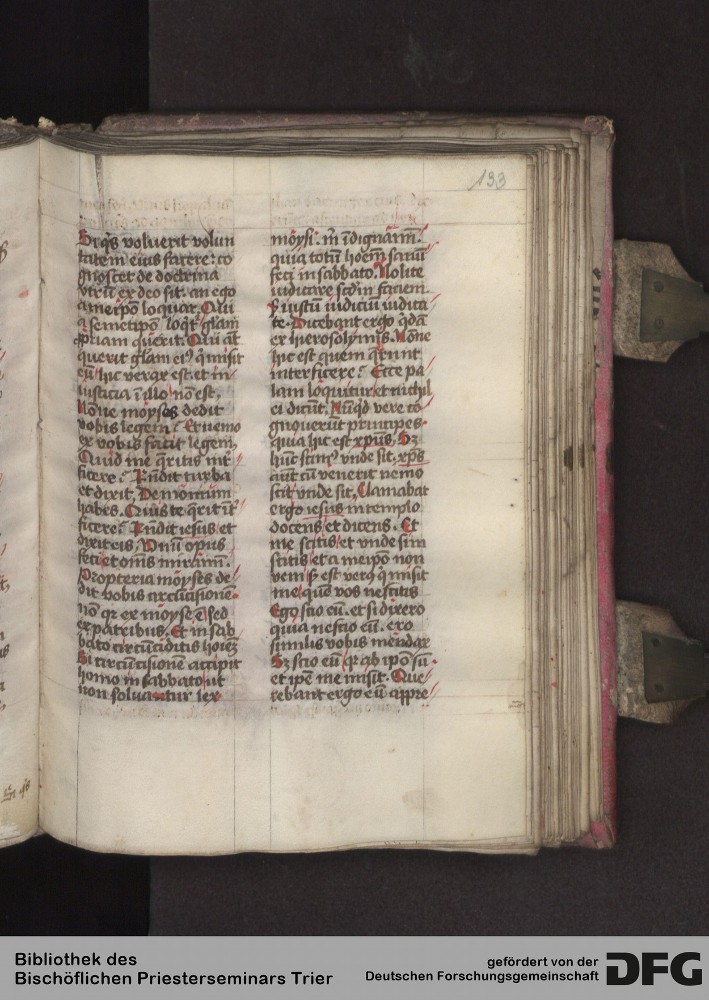 133
Si q̄s voluerit volun
tatem eius facere: co
gnoscet de doctrina
vtrū ex deo sit. an ego
a meip̄o loquar. Qui
a semetip̄o loqt̄ glam̄
ꝓpriam querit. Qui aūt
querit glam̄ eiꝰ q̄ misit
eū hic verax est. et in
iusticia ī illo nō est.
Nōne moyses dedit
vobis legem? Et nemo
ex vobis facit legem.
Quid me q̄ritis int̄
ficere? Rn̄dit turba
et dixit. Demonium
habes. Quis te q̄rit īt̄
ficere? Rn̄dit iesus et
dixit eis. Vnū opus
feci et om̄s miramī.
Propterea moyses de
dit vobis circūcisionē
nō qr ex moyse ē sed
ex patribus. Et in sab
bato circūciditis hoīez
Si circūcisionē accipit
homo in sabbato ut
non soluatur lex
moysi. m̄ īdignamī.
quia totū hoīem sanū
feci in sabbato. Nolite
iudicare scd̄m faciem.
s̄ iustū iudiciū iudica
te. Dicebant ergo q̄dā
ex hierosolymis. Nōne
hic est quem q̄runt
interficere? Ecce pa
lam loquitur et nichil
ei dicūt. Nūqd vere co
gnouerūt principes
quia hic est xp̄us. Sz
hūc scimꝰ vnde sit. xp̄s
aūt cū venerit nemo
scit vnde sit. Clamabat
ergo iesus in templo
docens et dicens. Et
me scitis et vnde sim
scitis et a meip̄o non
veni s̄ est verꝰ q̄ misit
me quē vos nescitis
Ego scio eū. et si dixero
quia nescio eū. ero
similis vobis mendax
Sz scio eū qr ab ip̄o sū.
et ip̄e me misit. Que
rebant ergo eū appre
Bibliothek des
Bischöflichen Priesterseminars Trier
gefördert von der
Deutschen Forschungsgemeinschaft
DFG